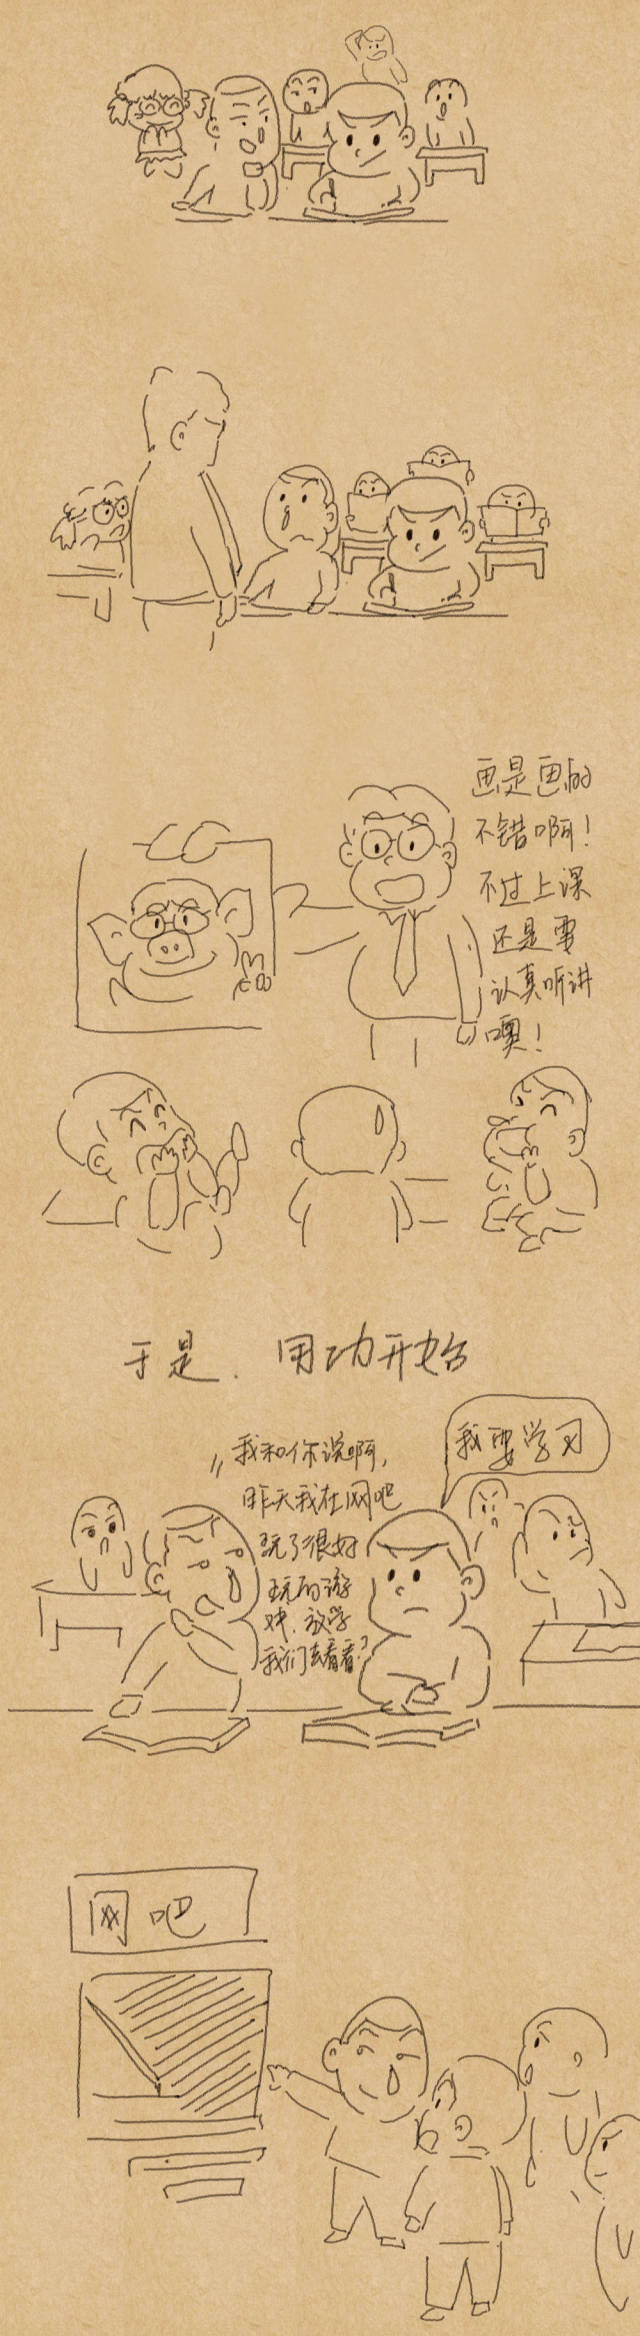 画是画的
不错啊！
不过上课
还是要
认真听讲
噢！
于是．用功开始
我和你说啊，
昨天我在网吧
玩了很好
玩的游
戏．放学
我们去看看？
我要学习
网吧